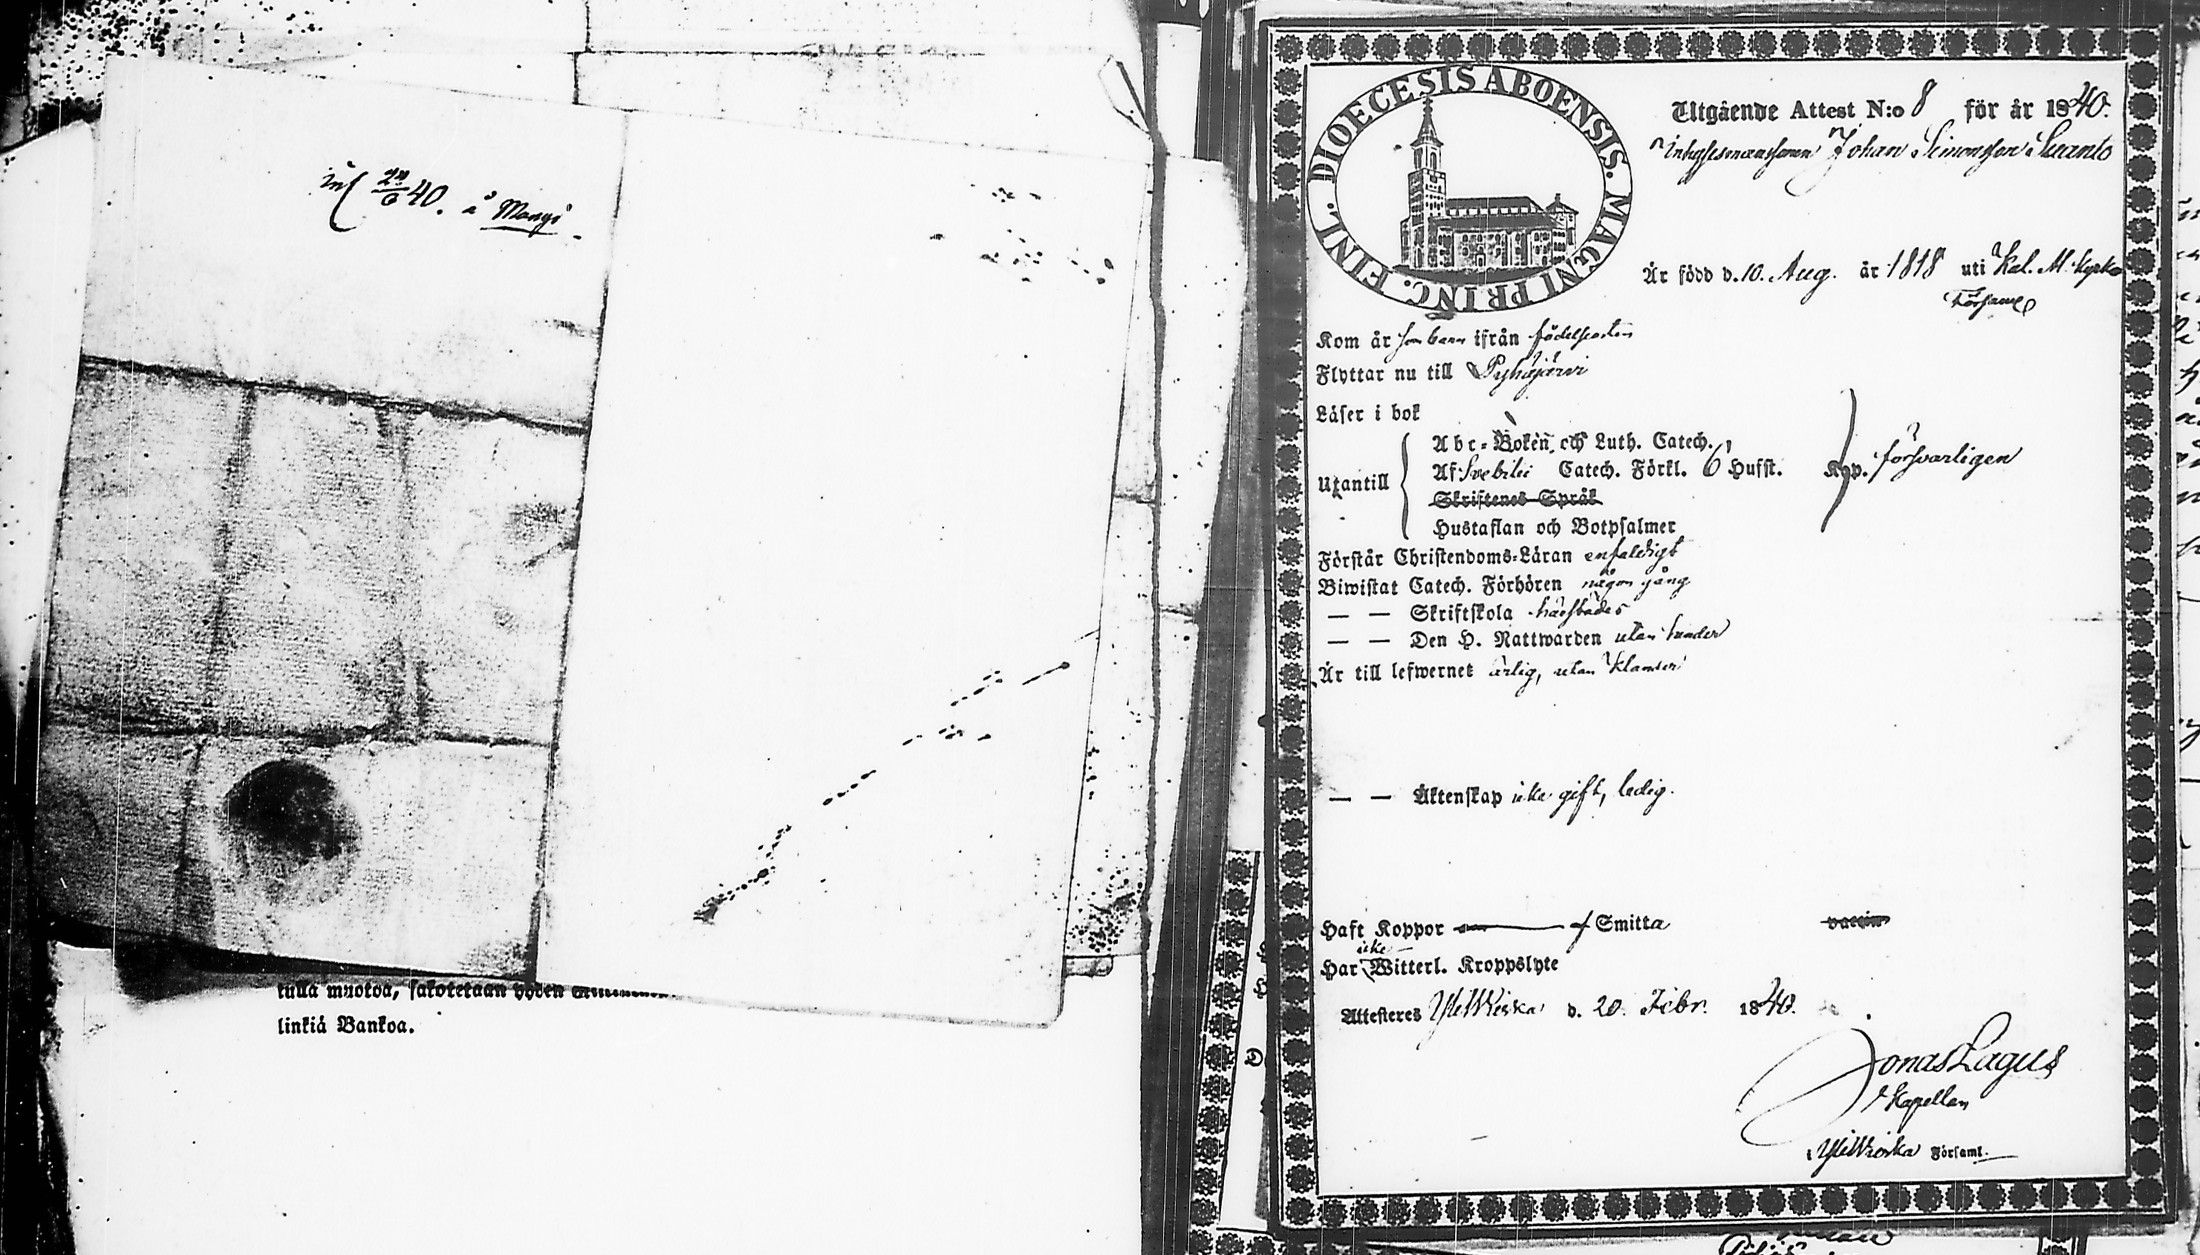 inf 24/6 40. å Mangi
tulla muotoa, sakotetaan yhden
linkiä Bankoa.
DIOECESIS ABOENSIS. MAGNI PRINC. FINL.
Utgående Attest N:o 8 för år 1840.
Inhysesmanssonen Johan Simonsson Suanto
Är född d. 10. Aug. år 1818 uti Kal. M. Kyrko
Församl
Kom år som barn ifrån födelseorten
Flyttar nu till Pyhäjärvi
Läser i bok
Abc-Boken, och Luth. Catech.
Utantill Af Svebilii Catech. Förkl. 6 Hufst. Kap. försvarligen
Skriftenes Språk
Hustaflan och Botpsalmer
Förstår Christendoms-Läran enfaldigt
Biwistat Catech. Förhören någon gång
— — Skriftskola härstädes
— — Den H. Nattwarden utan hinder
Är till lefwernet ärlig, utan klander
— — Äktenskap icke gift, ledig.
Haft Koppor Smitta vaccin
icke
Har Witterl. Kroppslyte
Attesteres YliWieska d. 20. Febr. 1840.
Jonas Lagus
Kapellan
i YliWieska Församl.
D